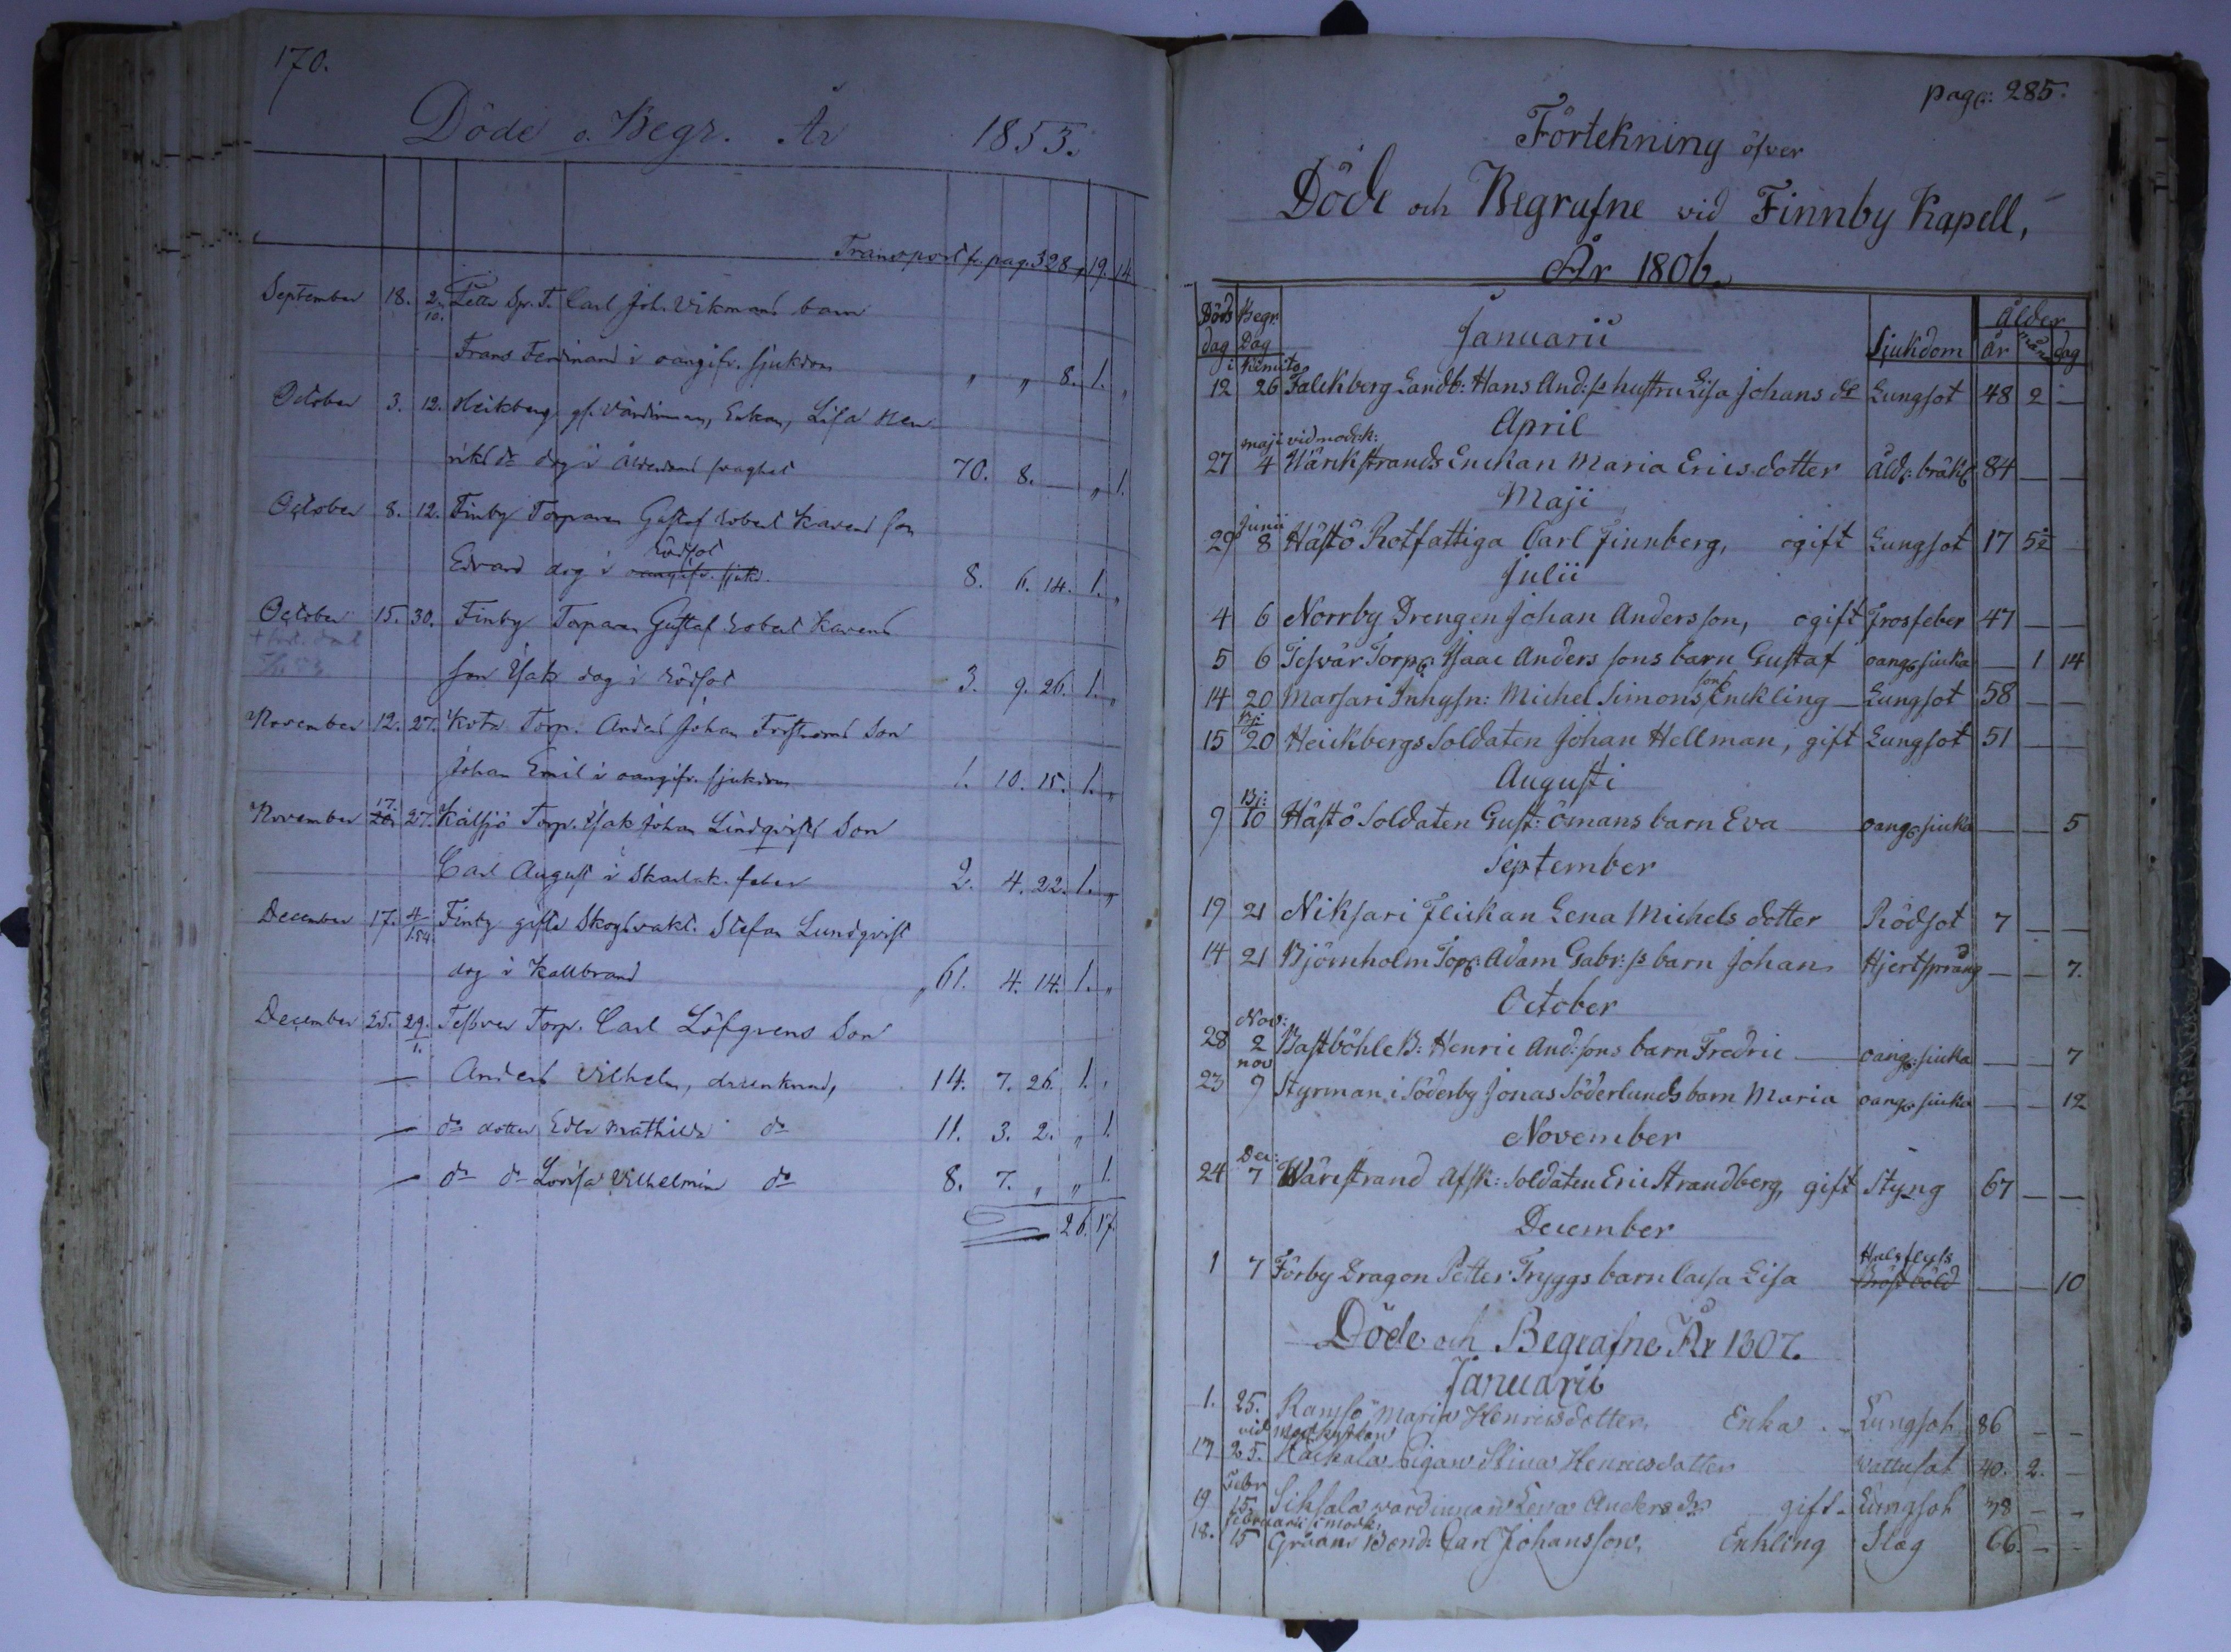 170.
Döde o. Begr. År 1853.
Transport fr. pag. 328 19. 14
September 18. 2/10. Petter Spr. T. Carl Joh. Vikmans barn
Frans Ferdinand i oangifv. sjukdom " " 8. 1. "
October 3. 12. Heikberg gl. Värdinnan, Enkan, Lisa Hen
riksdr dog i Ålderdoms svaghet 70. 8. — " 1.
October 8. 12. Finby Torparen Gustaf Robert Karens son
Rödsot
Edvard dog i oangifv. sjukd. 8. 6. 14. 1. "
October 15. 30. Finby Torparen Gustaf Robert Karens
son Isak dog i Rödsot 3. 9. 26. 1. "
November 12. 27. Torp. Anders Johan son
Johan Emil i oangifv. sjukdom 1. 10. 15. 1. "
November 17. 20. 27. Kålsjö Torp. Isak Johan Lindqvists Son
Carl August i Skarlak. feber 2. 4. 22. 1. "
December 17. 4/1.54 Finby gifte Skogsvakt. Stefan Lundqvist
dog i Kallbrand " 61. 4. 14. 1. "
December 25. 29/1. Torp. Carl Löfgrens Son
— Anders Vilhelm, drunknad, 14. 7. 26. 1. "
— do dotter Edla Mathilda do 11. 3. 2. " 1.
— do do Lovisa Vilhelmina do 8. 7. " " 1.
26. 17.
pag: 285.
Förtekning öfver
Döde och Begrafne vid Finnby Kapell,
År 1806.
Döds dag Begr. Dag Januarii Sjukdom Ålder år mån dag
i Kemito
12 26 Falckberg Landb: Hans And:ss hustru Lisa Johans dr Lungsot 48 2 —
April
maji vid modr:k:
27 4 Wärckstrands Enckan Maria Erics dotter Åld: bräkl: 84 — —
Maji
Junii
29 8 Hästö Rotfattiga Carl Finnberg, ogift Lungsot 17 5½
Julii
4 6 Norrby Drengen Johan Andersson, ogift Frosfeber 47 — —
5 6 Torp: Isaac Anders sons barn Gustaf oang: siuka — 1 14
14 20 Marsari Inhysn: Michel Simons son Enckling — Lungsot 58 — —
Bj:
15 20 Heickbergs Soldaten Johan Hellman, gift Lungsot 51 — —
Augusti
Bj:
9 10 Hästö Soldaten Gust: Ömans barn Eva oang: siuka — — 5
September
19 21 Niksari Flickan Lena Michels dotter Rödsot 7 — —
14 21 Björnholm Torp: Adam Gabr:ss barn Johan Hjertsprång — — 7.
October
Nov:
28 2 Bastböhle B: Henric And:sons barn Fredric — oang: siuka — — 7
nov
23 9 Styrman i Söderby Jonas Söderlunds barn Maria oang: siuka — — 12
November
Dec:
24 7 Wärcstrand Afsk: Soldaten Eric Strandberg, gift Styng 67 — —
December
Halsflyts
1 7 Förby Dragon Petter Tryggs barn Caisa Lisa Bröstböld — — 10
Döde och Begrafne År 1807.
Januarii
1. 25. Ramsö Maria Henricsdotter, Enka. — Lungsot 86 — —
vid modkyrkan
17 25. Pigan Stina Henricsdotter Vattusot 40. 2. —
Febr
19 15. värdinnan Lena Anders dr gift — Lungsot 78 — —
februarii i modk:
18. 15 Bond: Carl Johansson, Enkling Slag 66. — —